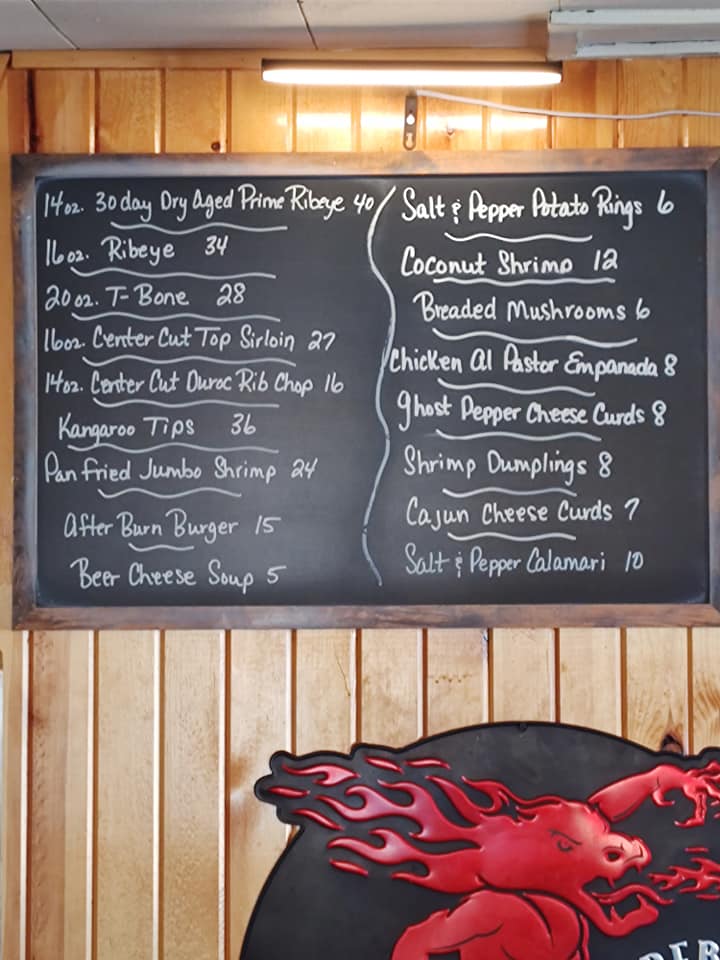 14oz. 30 day Dry Aged Prime Ribeye 40
16oz. Ribeye 34
20oz. T-Bone 28
16oz. Center Cut Top Sirloin 27
14oz. Center Cut Duroc Rib Chop 16
Kangaroo Tips 36
Pan fried Jumbo Shrimp 24
After Burn Burger 15
Beer Cheese Soup 5
Salt & Pepper Potato Rings 6
Coconut Shrimp 12
Breaded Mushrooms 6
Chicken Al Pastor Empanada 8
Ghost Pepper Cheese Curds 8
Shrimp Dumplings 8
Cajun Cheese Curds 7
Salt & Pepper Calamari 10